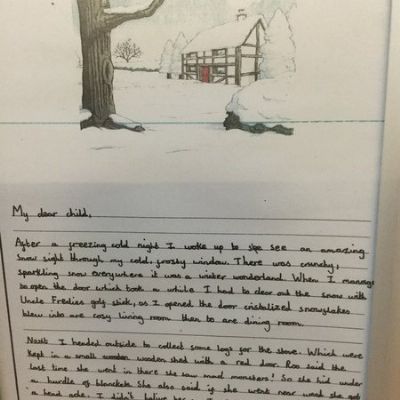 My dear child,
After a freezing cold night I woke up to see an amazing
snow sight through my cold, frosty window. There was crunchy,
sparkling snow everywhere it was a winter wonderland. When I manage
to open the door which took a while I had to clear out the snow with
Uncle Fredies golf stick, as I opened the door cristalized snowflakes
blew into are cosy living room then to are dining room.
Next I headed outside to collect some logs for the stove. Which were
kept in a small wooden shed with a red door. Roo said the
last time she went in there she saw mad monsters! So she hid under
a hurdle of blanckets. She also said if she went near wash she got
a head ache. I didn't